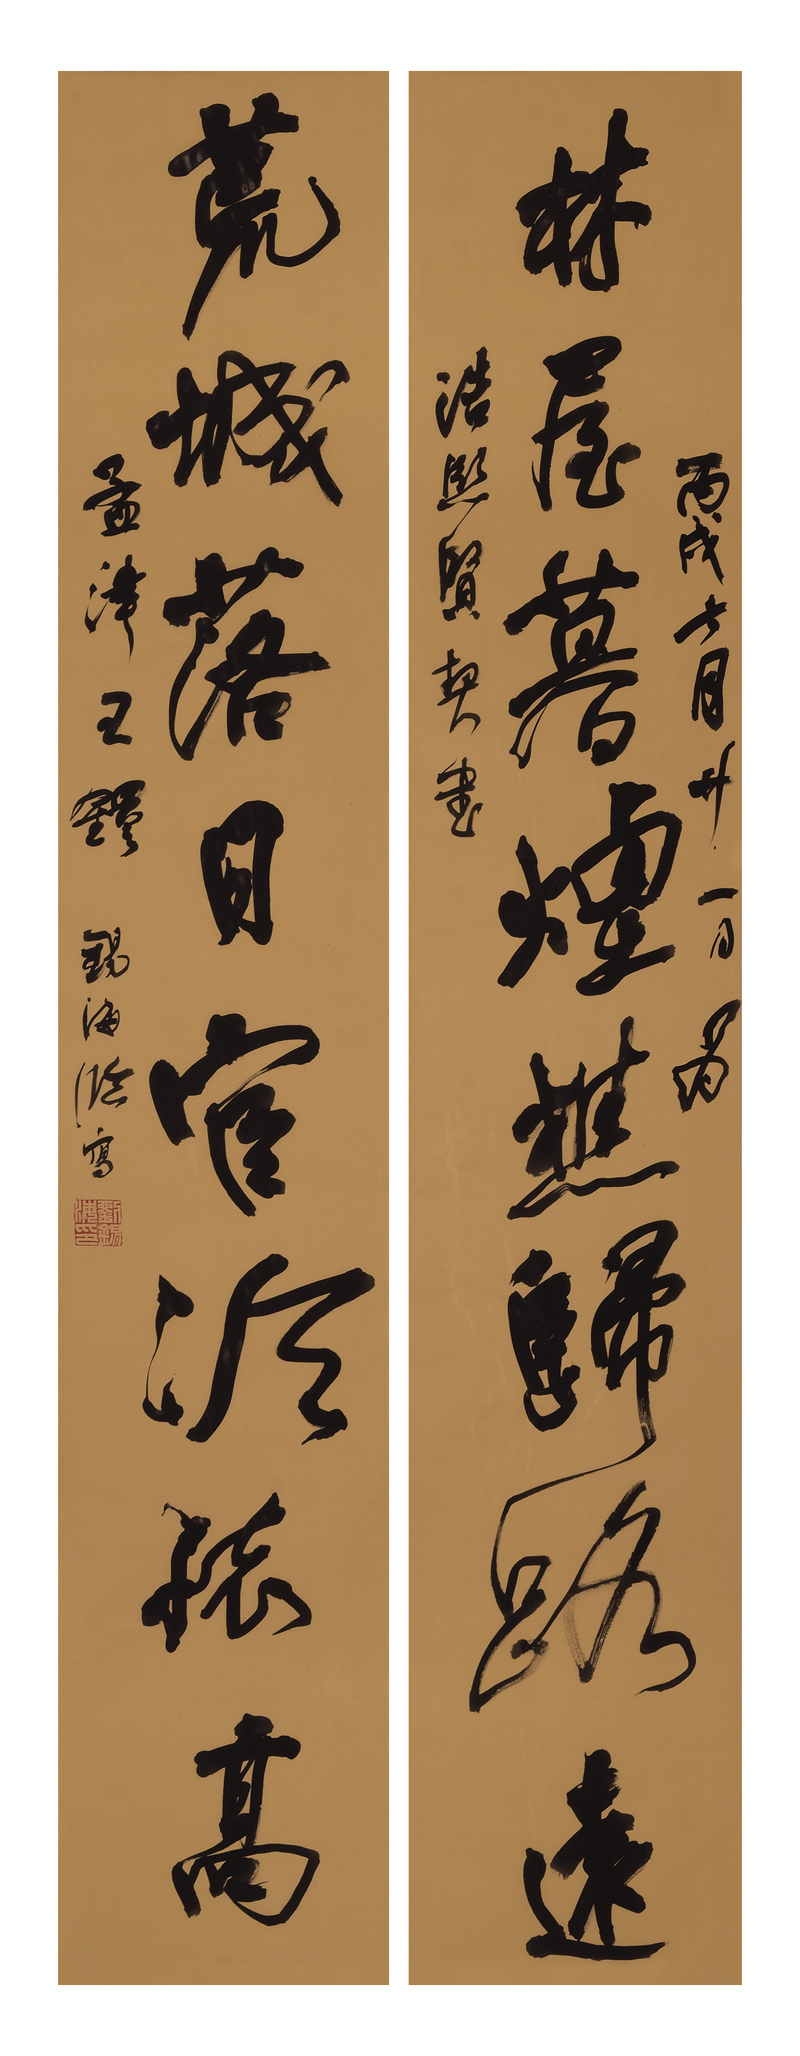 丙戌七月廿一日为
林屋暮煙樵歸路遠
浩熙賢契書
荒城落日官冷高
孟津王鐸 錫海臨寫
劉錫海印